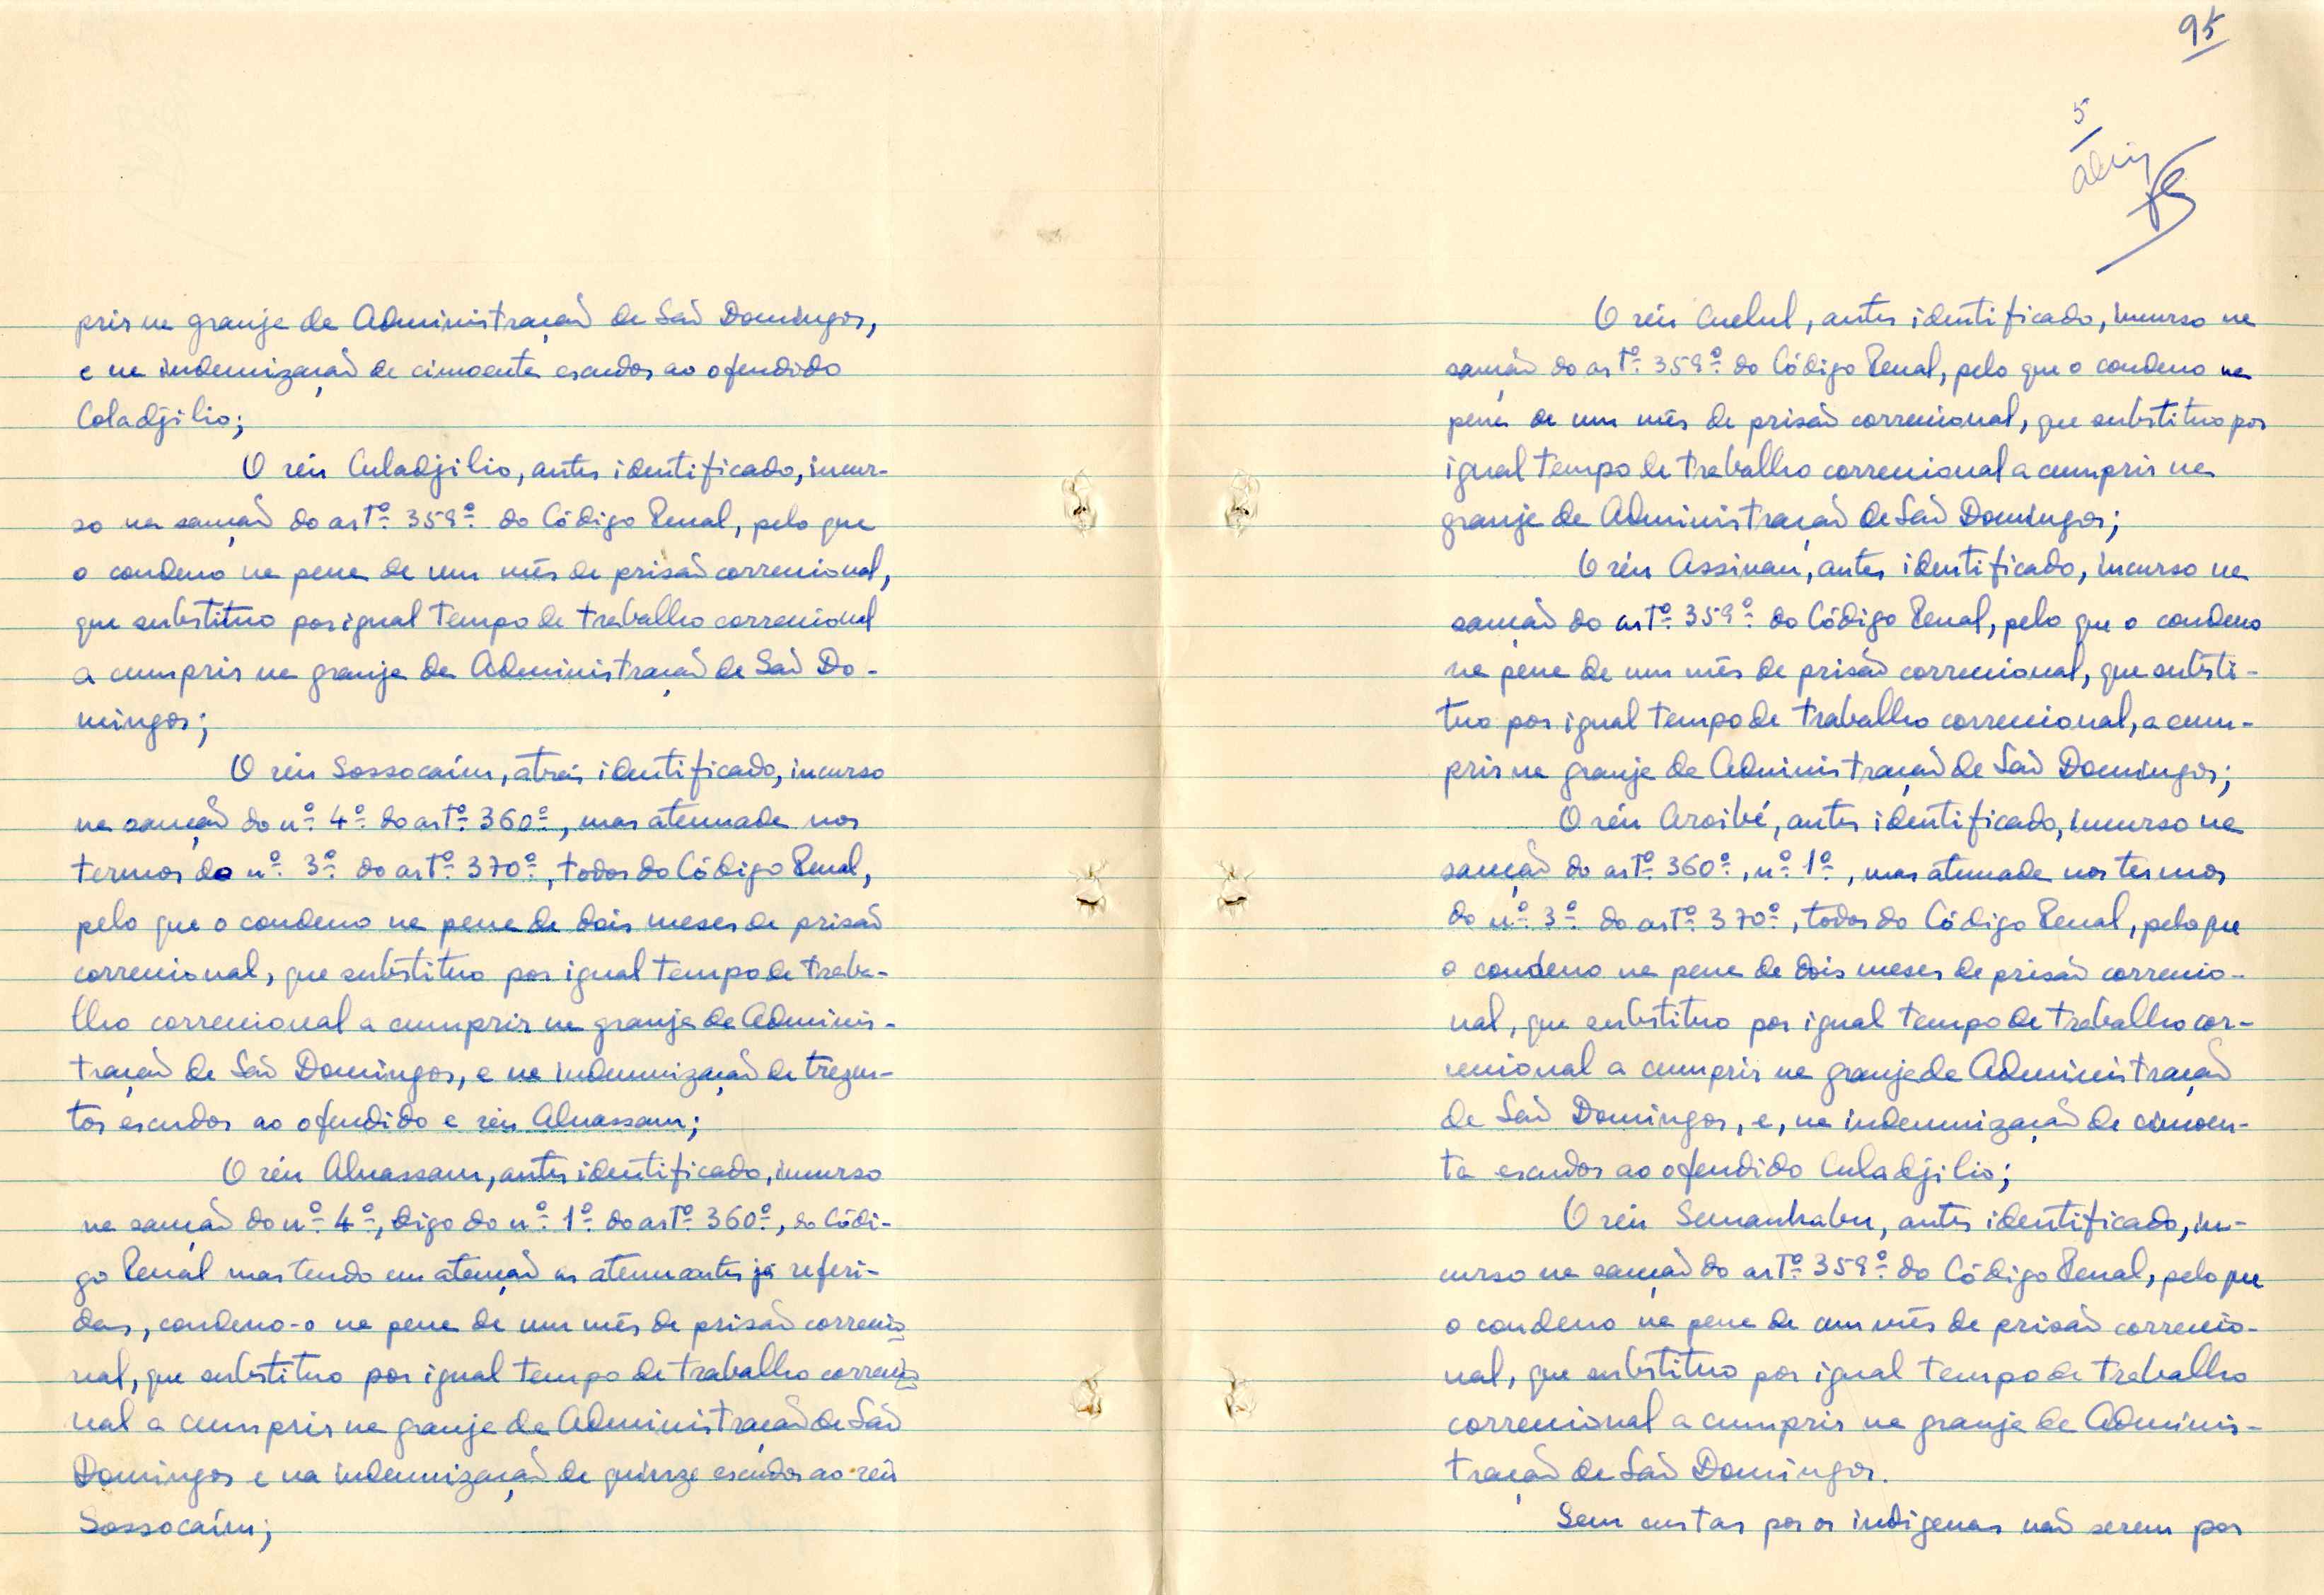 prir na granja da Administração de São Domingos,
e na indemnização de cincoenta escudos ao ofendido
Coladjilio;
O réu Culadjilio, antes identificado, incur-
so na sanção do artº 359º do Código Penal, pelo que
o condeno na pena de um mês de prisão correcional,
que substituo por igual tempo de trabalho correcional
a cumprir na granja da Administração de São Do-
mingos;
O réu Sossocaím, atrás identificado, incurso
na sanção do nº 4º do artº 360º, mas atenuada nos
termos do nº 3º do artº 370º, todos do Código Penal,
pelo que o condeno na pena de dois meses de prisão
correcional, que substituo por igual tempo de traba-
lho correcional a cumprir na granja da Adminis-
tração de São Domingos, e na indemnização de trezen-
tos escudos ao ofendido e réu Aluassam;
O réu Aluassam, antes identificado, incurso
na sanção do nº 4º, digo do nº 1º do artº 360º, do Códi-
go Penal mas tendo em atenção as atenuantes já referi-
das, condeno-o na pena de um mês de prisão correcio
nal, que substituo por igual tempo de trabalho correcio
nal a cumprir na granja da Administração de São
Domingos e na indemnização de quinze escudos ao réu
Sossocaím;
95
5
O réu Cuelul, antes identificado, incurso na
sanção do artº 359º do Código Penal, pelo que o condeno na
pena de um mês de prisão correcional, que substituo por
igual tempo de trabalho correcional a cumprir na
granja da Administração de São Domingos;
O réu Assinau, antes identificado, incurso na
sanção do artº 359º do Código Penal, pelo que o condeno
na pena de um mês de prisão correcional, que substi-
tuo por igual tempo de trabalho correcional, a cum-
prir na granja da Administração de São Domingos;
O réu Aroibé, antes identificado, incurso na
sanção do artº 360º, nº 1º, mas atenuada nos termos
do nº 3º do artº 370º, todos do Código Penal, pelo que
o condeno na pena de dois meses de prisão correcio-
nal, que substituo por igual tempo de trabalho cor-
recional a cumprir na granja da Administração
de São Domingos, e, na indemnização de cincoen-
ta escudos ao ofendido Culadjilio;
O réu Semanhabu, antes identificado, in-
curso na sanção do artº 359º do Código Penal, pelo que
o condeno na pena de um mês de prisão correcio-
nal, que substituo por igual tempo de trabalho
correcional a cumprir na granja da Adminis-
tração de São Domingos.
Sem custas por os indígenas não serem por